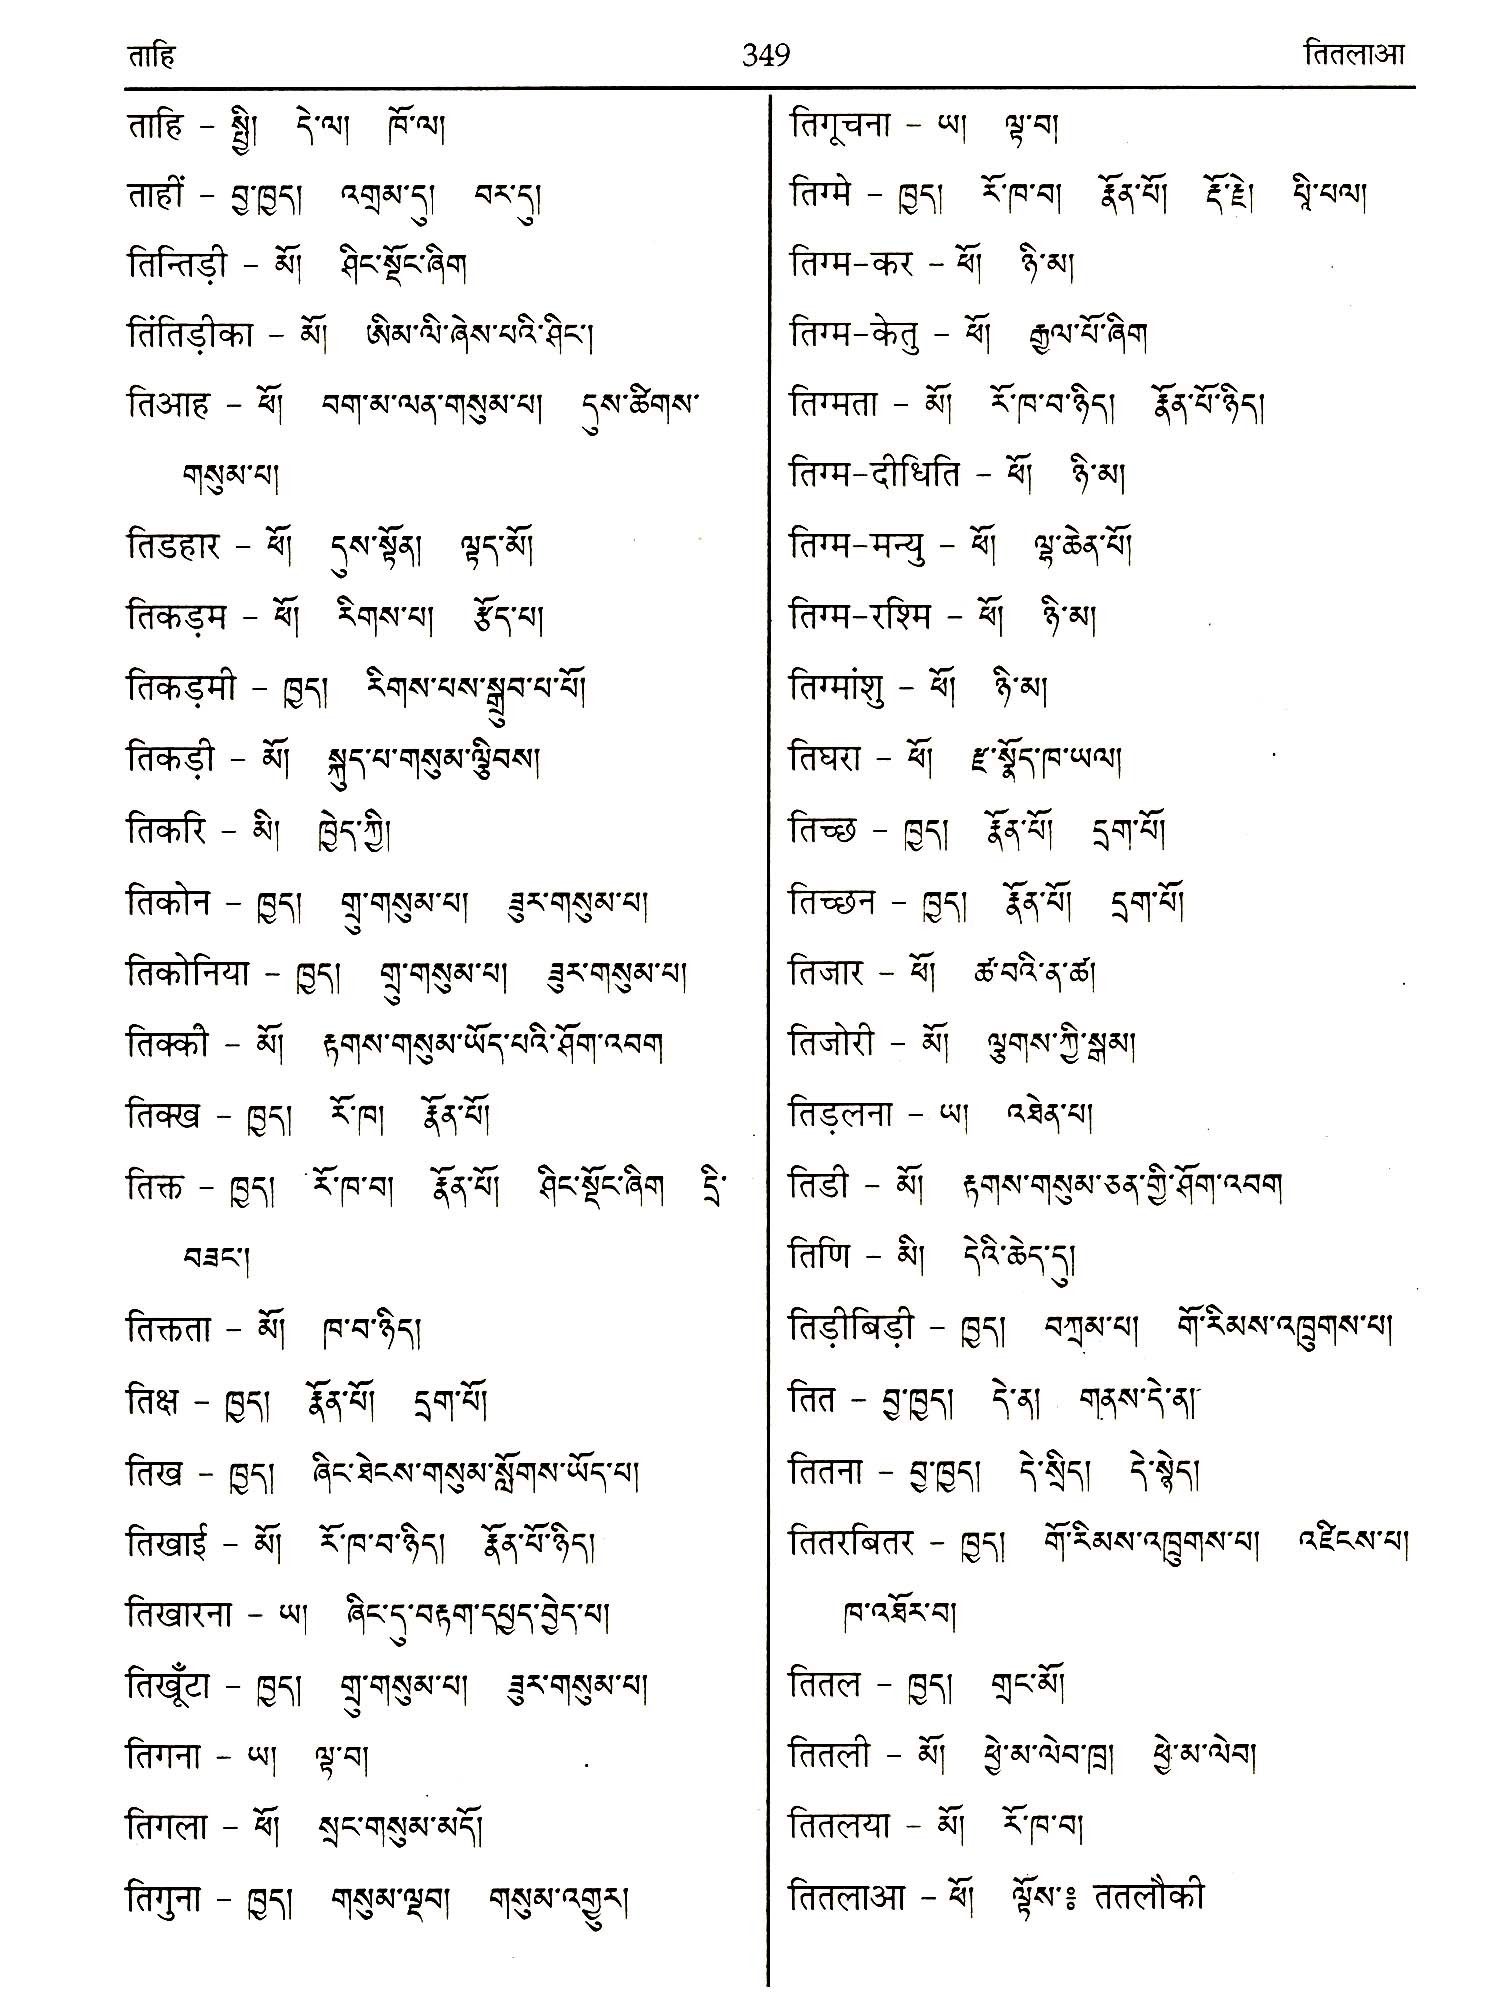 ताहि
349
तितलाआ
ताहि – སྤྱི། དེ་ལ། ཁོ་ལ།
ताहीं – བྱ་ཁྱད། འགྲམ་དུ། བར་དུ།
तिन्तिड़ी – མོ། ཤིང་སྡོང་ཞིག
तिंतिड़ीका – མོ། ཨིམ་ལི་ཞེས་པའི་ཤིང་།
तिआह – ཕོ། བག་མ་ལན་གསུམ་པ། དུས་ཚིགས་
གསུམ་པ།
तिडहार – ཕོ། དུས་སྟོན། ལྟད་མོ།
तिकड़म – ཕོ། རིགས་པ། རྩོད་པ།
तिकड़मी – ཁྱད། རིགས་པས་སྒྲུབ་པ་པོ།
तिकड़ी – མོ། སྐུད་པ་གསུམ་ལྕིབས།
तिकरि – མི། ཁྱེད་ཀྱི།
तिकोन – ཁྱད། གྲུ་གསུམ་པ། ཟུར་གསུམ་པ།
तिकोनिया – ཁྱད། གྲུ་གསུམ་པ། ཟུར་གསུམ་པ།
तिक्की – མོ། རྟགས་གསུམ་ཡོད་པའི་ཤོག་འབག
तिक्ख – ཁྱད། རོ་ཁ། རྣོན་པོ།
तिक्त – ཁྱད། རོ་ཁ་བ། རྣོན་པོ། ཤིང་སྡོང་ཞིག དྲི་
བཟང་།
तिक्तता – མོ། ཁ་བ་ཉིད།
तिक्ष – ཁྱད། རྣོན་པོ། དྲག་པོ།
तिख – ཁྱད། ཞིང་ཐེངས་གསུམ་སློགས་ཡོད་པ།
तिखाई – མོ། རོ་ཁ་བ་ཉིད། རྣོན་པོ་ཉིད།
तिखारना – ཡ། ཞིང་དུ་བརྟག་དཔྱད་བྱེད་པ།
तिखूँटा – ཁྱད། གྲུ་གསུམ་པ། ཟུར་གསུམ་པ།
तिगना – ཡ། ལྟ་བ།
तिगला – ཕོ། སྲང་གསུམ་མདོ།
तिगुना – ཁྱད། གསུམ་ལྡབ། གསུམ་འགྱུར།
तिगूचना – ཡ། ལྟ་བ།
तिग्मे – ཁྱད། རོ་ཁ་བ། རྣོན་པོ། རྡོ་རྗེ། པཱི་པལ།
तिग्म-कर – ཕོ། ཉི་མ།
तिग्म-केतु – ཕོ། རྒྱལ་པོ་ཞིག
तिग्मता – མོ། རོ་ཁ་བ་ཉིད། རྣོན་པོ་ཉིད།
तिग्म-दीधिति – ཕོ། ཉི་མ།
तिग्म-मन्यु – ཕོ། ལྷ་ཆེན་པོ།
तिग्म-रश्मि – ཕོ། ཉི་མ།
तिग्मांशु – ཕོ། ཉི་མ།
तिघरा – ཕོ། རྫ་སྣོད་ཁ་ཡལ།
तिच्छ – ཁྱད། རྣོན་པོ། དྲག་པོ།
तिच्छन – ཁྱད། རྣོན་པོ། དྲག་པོ།
तिजार – ཕོ། ཚ་བའི་ན་ཚ།
तिजोरी – མོ། ལྕགས་ཀྱི་སྒམ།
तिड़लना – ཡ། འཐེན་པ།
तिडी – མོ། རྟགས་གསུམ་ཅན་གྱི་ཤོག་འབག
तिणि – མི། དེའི་ཆེད་དུ།
तिड़ीबिड़ी – ཁྱད། བཀྲམ་པ། གོ་རིམས་འཁྲུགས་པ།
तित – བྱ་ཁྱད། དེ་ན། གནས་དེ་ན།
तितना – བྱ་ཁྱད། དེ་སྲིད། དེ་སྙེད།
तितरबितर – ཁྱད། གོ་རིམས་འཁྲུགས་པ། འཛིངས་པ།
ཁ་འཐོར་བ།
तितल – ཁྱད། གྲང་མོ།
तितली – མོ། ཕྱེ་མ་ལེབ་ཁྲ། ཕྱེ་མ་ལེབ།
तितलया – མོ། རོ་ཁ་བ།
तितलाआ – ཕོ། ལྟོས་༔ ततलौकी